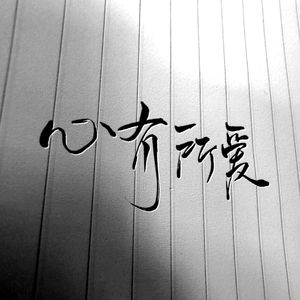 心有所爱